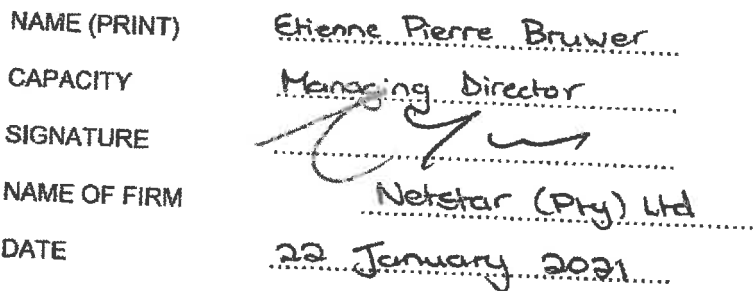 NAME (PRINT) Etienne Pierre Bruwer
CAPACITY Managing Director
SIGNATURE
NAME OF FIRM Netstar (Pty) Ltd
DATE 22 January 2021